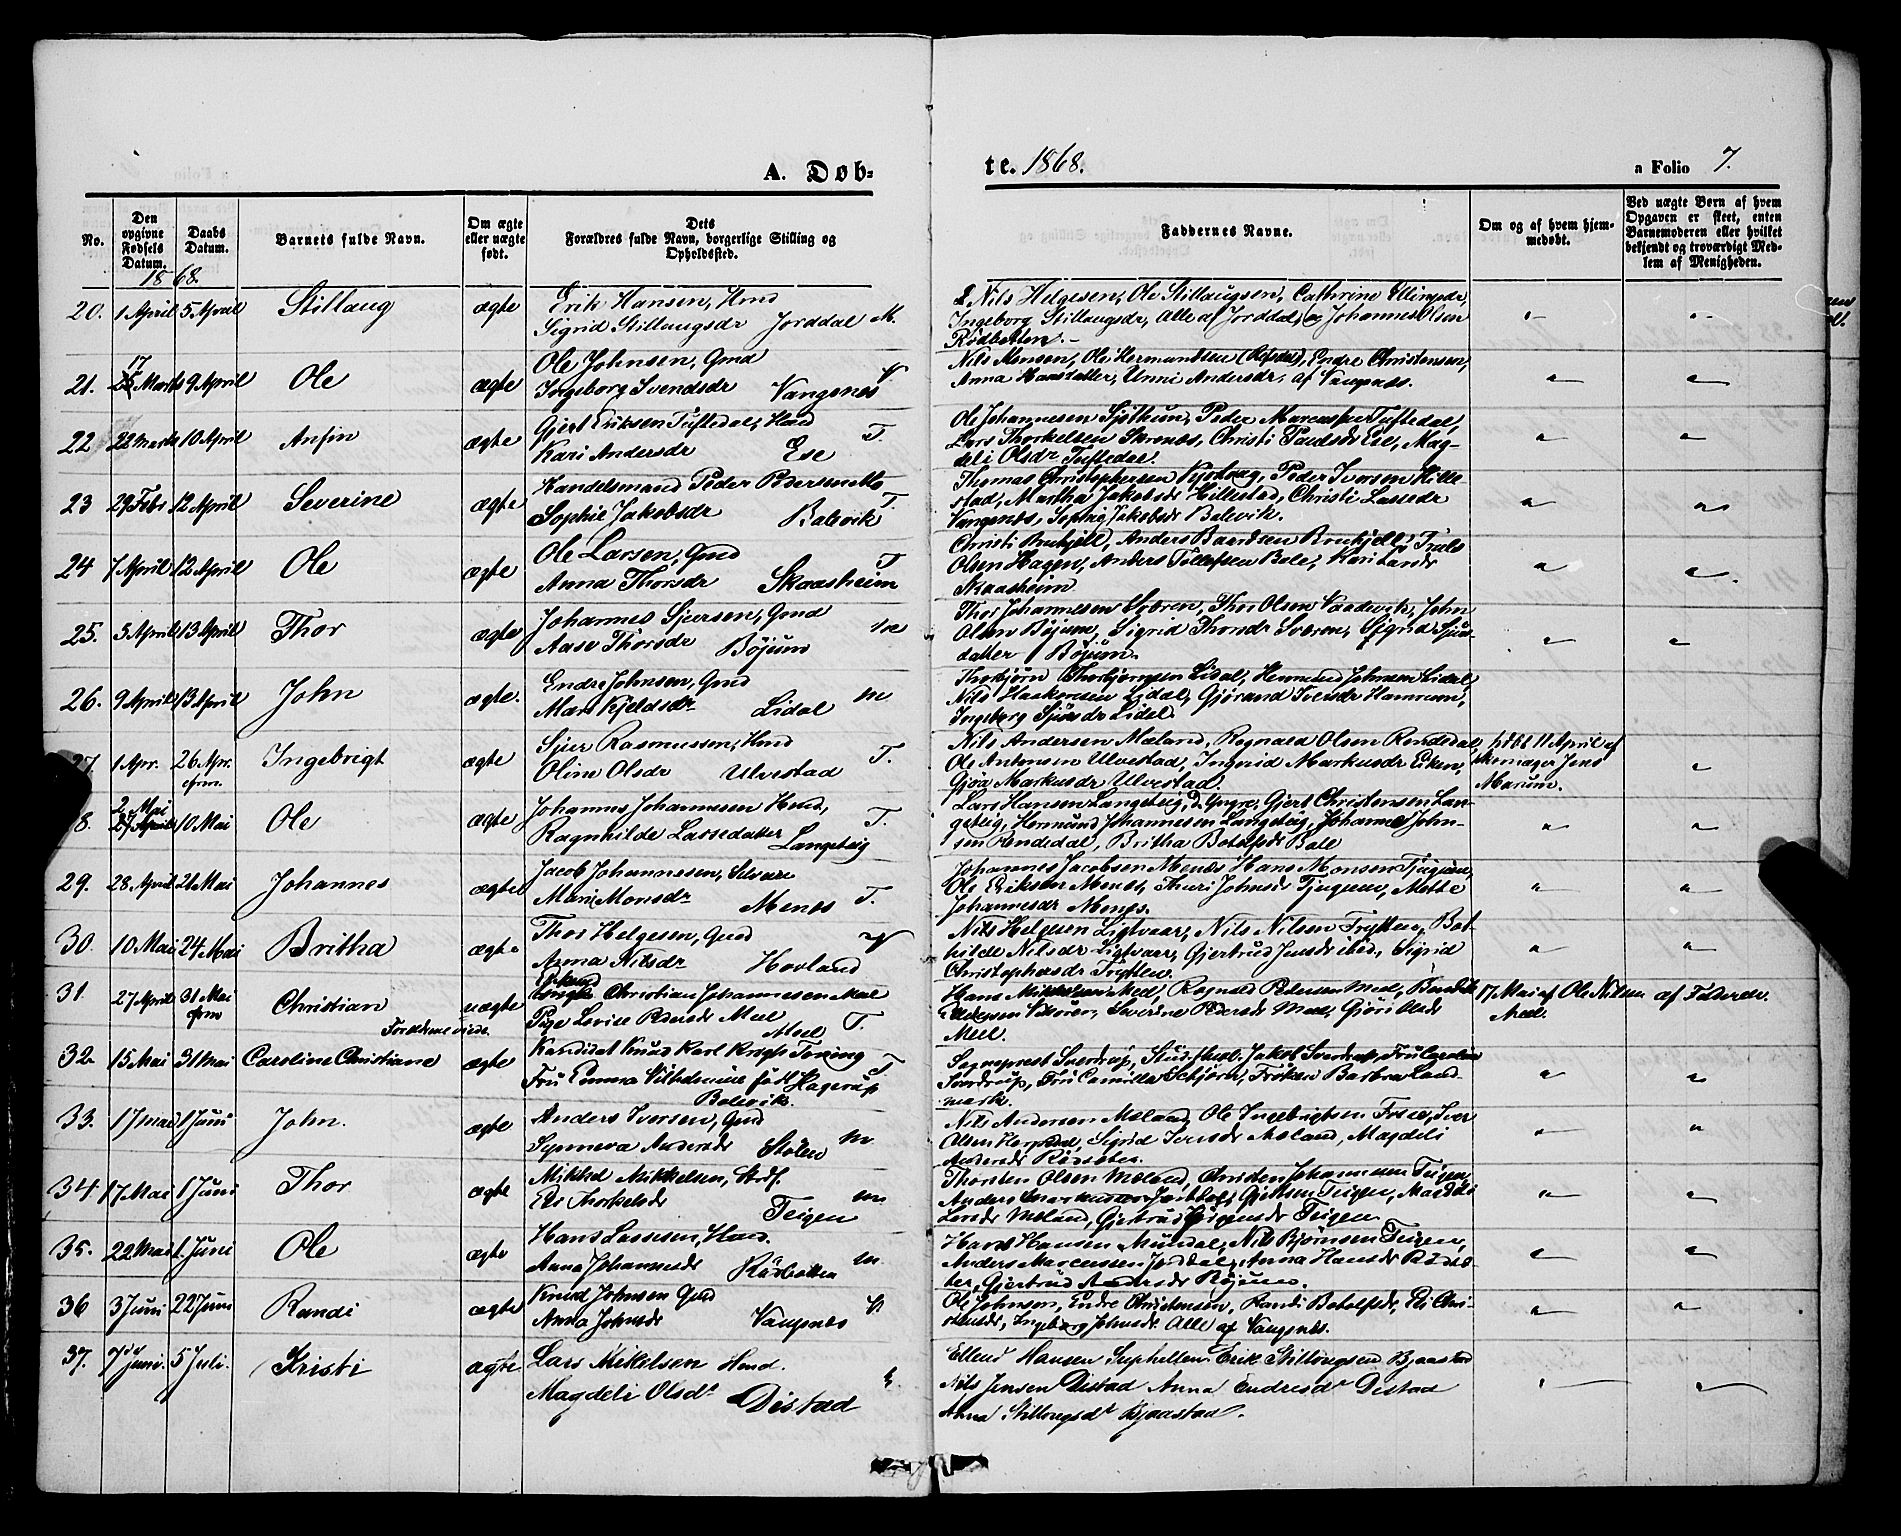 A. Døb-
te. 1868.
a Folio 7.
No.
Den opgivne Fødsels Datum.
Daabs Datum.
Barnets fulde Navn.
Om ægte eller uægte født.
Dets Forældres fulde Navn, borgerlige Stilling og Opholdssted.
Faddernes Navne.
Om og af hvem hjemmedøbt.
Ved uægte Børn af hvem Opgaven er skeet, enten Barnemoderen eller hvilket bekjendt og troværdigt Medlem af Menigheden.
1868.
20. 1 April 5 April Stillaug ægte Erik Hansen, Hmd
Sigrid Stillaugsdr Jorddal M.
Nils Helgesen, Ole Stillaugsen, Cathrine
Ingeborg Stillaugsdr, Alle af Jorddal, Johannes Olsen
Rødbotten.
21. 17 Marts 9 April Ole ægte Ole Johnsen, Gmd
Ingeborg Svendsdr Vangsnes V
Nils Monsen, Ole Hermundsen, Endre Christensen,
Anna Hansdatter, Unni Andersdr, af Vangsnes.
22 22 Marts 10 April Anfin ægte Gjert Eriksen Tuftedal, Hmd
Kari Andersdr Ese T.
Ole Johannesen Sjøthun, Peder Marcussen Tuftedal,
Lars Thorkelsen Skrenes, Christi Paulsdr Ese, Mag-
deli Olsdr Tuftedal.
23 29 Febr 12 April Severine ægte Handelsmand Peder Pedersen
Sophie Jakobsdr Balevik T.
Thomas Christophersen Nyborg, Peder Iversen Hille-
stad, Martha Jakobsdr Hillestad, Christi Lassedr
Vangsnes, Sophie Jakobsdr Balevik.
24 7 April 12 April Ole ægte Ole Larsen, Gmd T
Anna Thorsdr Skaasheim
Christi, Anders Baardsen, Truls
Olsen Hagen, Anders Tollefsen Bale, Kari
Skaasheim
25. 5 April 13 April Thor ægte Johannes Sjursen, Gmd
Aase Thorsdr Bøjum M
Thor Johannesen Sværen, Thor Olsen, John
Olsen Bøjum, Sigrid Thorsdr Sværen, Sigrid Sjurs-
datter Bøjum.
26. 9 April 13 April John ægte. Endre Johnsen, Gmd
Mari Kjeldsdr Lidal M
Thorbjørn Thorbjørnsen Lidal, Hermund Johnsen Lidal
Nils Haakensen Lidal, Gjørand Iversdr Hamrum,
Ingeborg Lidal.
27. 1 Apr. 26 Apr. Ingebrigt ægte Sjur Rasmussen, Hmd
Oline Olsdr Ulvestad T.
Nils Andersen Mæland, Rognald Olsen Rendedal,
Ole Antonsen Ulvestad, Ingrid Markusdr Eiken,
Gjøa Markusdr Ulvestad.
hdbt 11 April af
Jens
8. 2 Mai 10 Mai Ole ægte Johannes Johannesen Hmd,
Ragnhilde Lassedatter Langeteig T.
Lars Hansen Langeteig, d. Yngre, Gjert Christensen Lan-
geteig, Hermund Johannesen Langeteig, Johannes John-
sen Rendedal, Britha Botolfsdr Bale
29. 28 April 21 Mai Johannes ægte Jacob Johannesen,
Mari Monsdr Menes T.
Johannes Jacobsen Menes Hans Monsen Tjugum,
Ole Eriksen Menes, Thuri Johnsdr Tjugum, Mette
Johannesdr Menes.
30. 10 Mai 24 Mai Britha ægte Thor Helgesen, Gmd V
Anna Nilsdr Hovland
Nils Helgesen Ligtvaar, Nils Nilsen Trytten, Bot-
hilde Nilsdr Ligtvaar, Gjertrud Jensdr ibid, Sigrid
Christophersdr Trytten.
31 27 April 31 Mai Christian uægte Christian Johannesen Meel
Pige Lovise Pedersdr Meel T.
Hans Mikkelsen Meel, Rognald Pedersen Meel,
Severine Pedersdr Meel, Gjøri Olsdr
Meel
17 Mai af Ole Nilsen
Meel.
af Faderen.
32. 15 Mai 31 Mai Caroline Christiane ægte Kandidat Knud Karl Krogh Tonning
Fru Emma Vilhelmine født Hagerup T
Balevik.
Sogneprest Sverdrup, Stud. Jakob Sverdrup, Fru Caroline
Sverdrup, Fru Camilla Schjørn, Frøken Barbra Land-
mark.
33. 17 Mai 1 Juni John. ægte Anders Iversen, Gmd
Synneva Andersdr Stølen M
Nils Andersen Mæland, Ole Ingebrigtsen Fosse, Iver
Olsen, Sigrid Iversdr Mæland, Magdeli
Andersdr
34. 17 Mai 1 Juni Thor ægte Mikkel Mikkelsen,
Eli Thorkelsdr Teigen M
Thorsten Olsen Mæland, Christen Johannesen Teigen,
Anders Jorddal, Teigen, Magdeli
Larsdr Mæland, Gjertrud Teigen.
35. 22 Mai 1. Juni Ole ægte Hans Lassesen, Hmd.
Anna Johannesdr Rødbotten M
Hans Hansen Mundal, Nils Bjørnsen Teigen,
Anders Marcussen Jorddal, Anna Hansdr
Gjertrud Andersdr Bøjum.
36 3 Juni 22 Juni Randi ægte Knud Johnsen Gmd
Anna Johnsdr Vangsnes V
Ole Johnsen, Endre Christensen, Randi Botolfsdr, Eli Chri-
stensdr, Ingeborg Johnsdr. Alle af Vangsnes.
37. 7 Juni. 5 Juli. Kristi ægte Lars Mikelsen Hmd.
Magdeli Olsdr Distad
Ellend Hansen Suphellen Erik Stillougsen Bjaastad
Nils Jensen Distad Anna Endresdr Distad
Anna Stillougsdr Bjaastad.